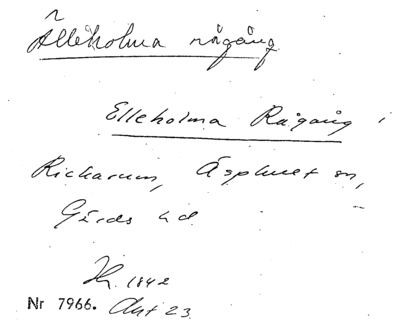 Ålleholma rågång
Elleholma Rågång i
Rickarum, Äsphult sn,
Gärds hd.
1842
Nr 7966. Akt 23.